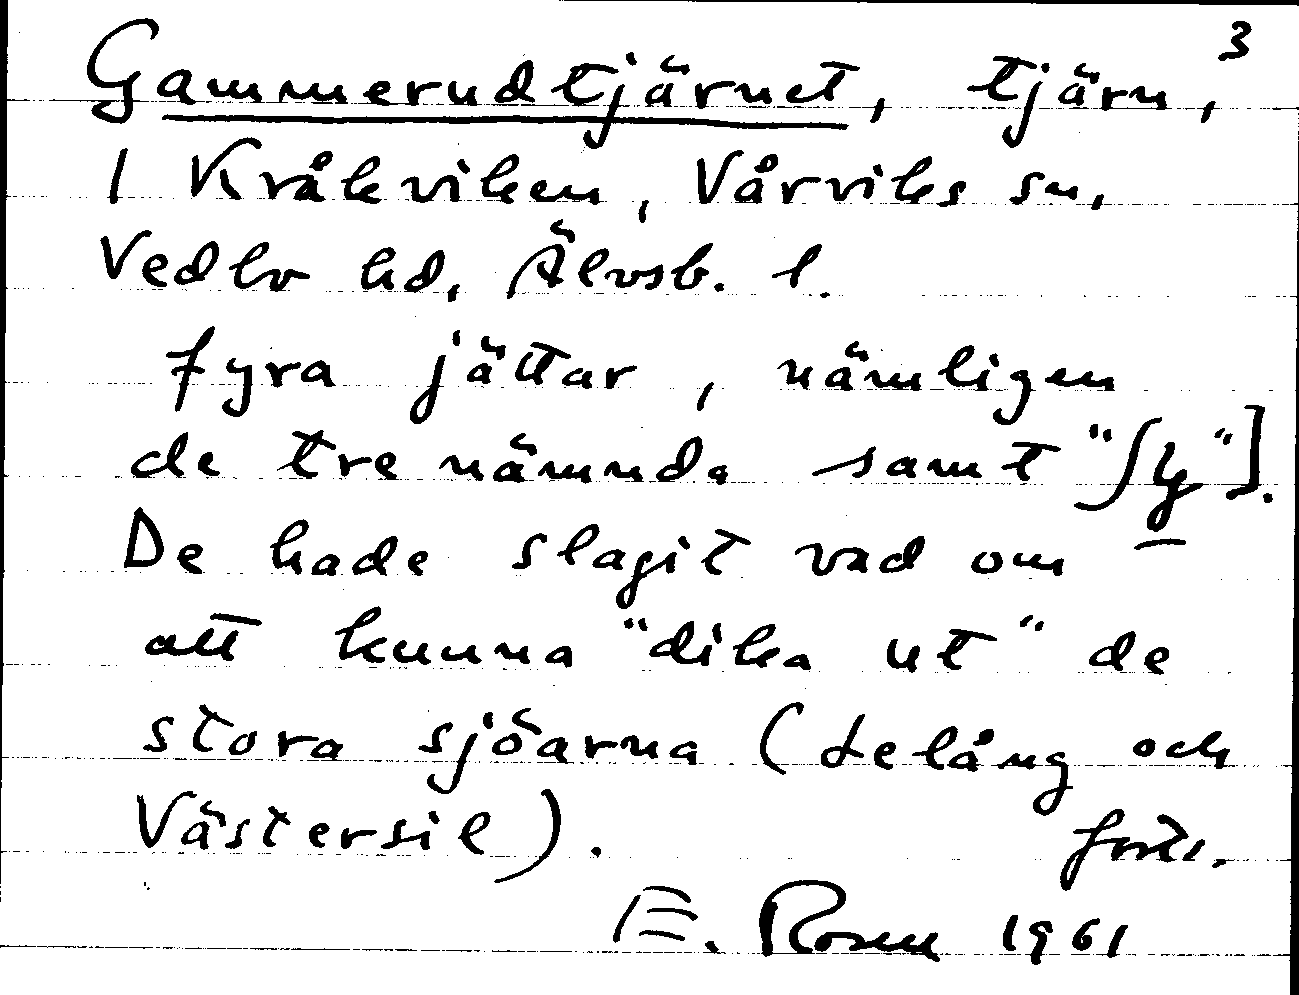 3
Gammerudtjärnet, tjärn,
1 Kråkviken, Vårviks sn,
Vedbo hd, Älvsb. l.
fyra jättar, nämligen
de tre nämnda samt "ʃy"].
De hade slagit vad om
att kunna "dika ut" de
stora sjöarna (Lelång och
Västersil). forts.
E. Rosén 1961